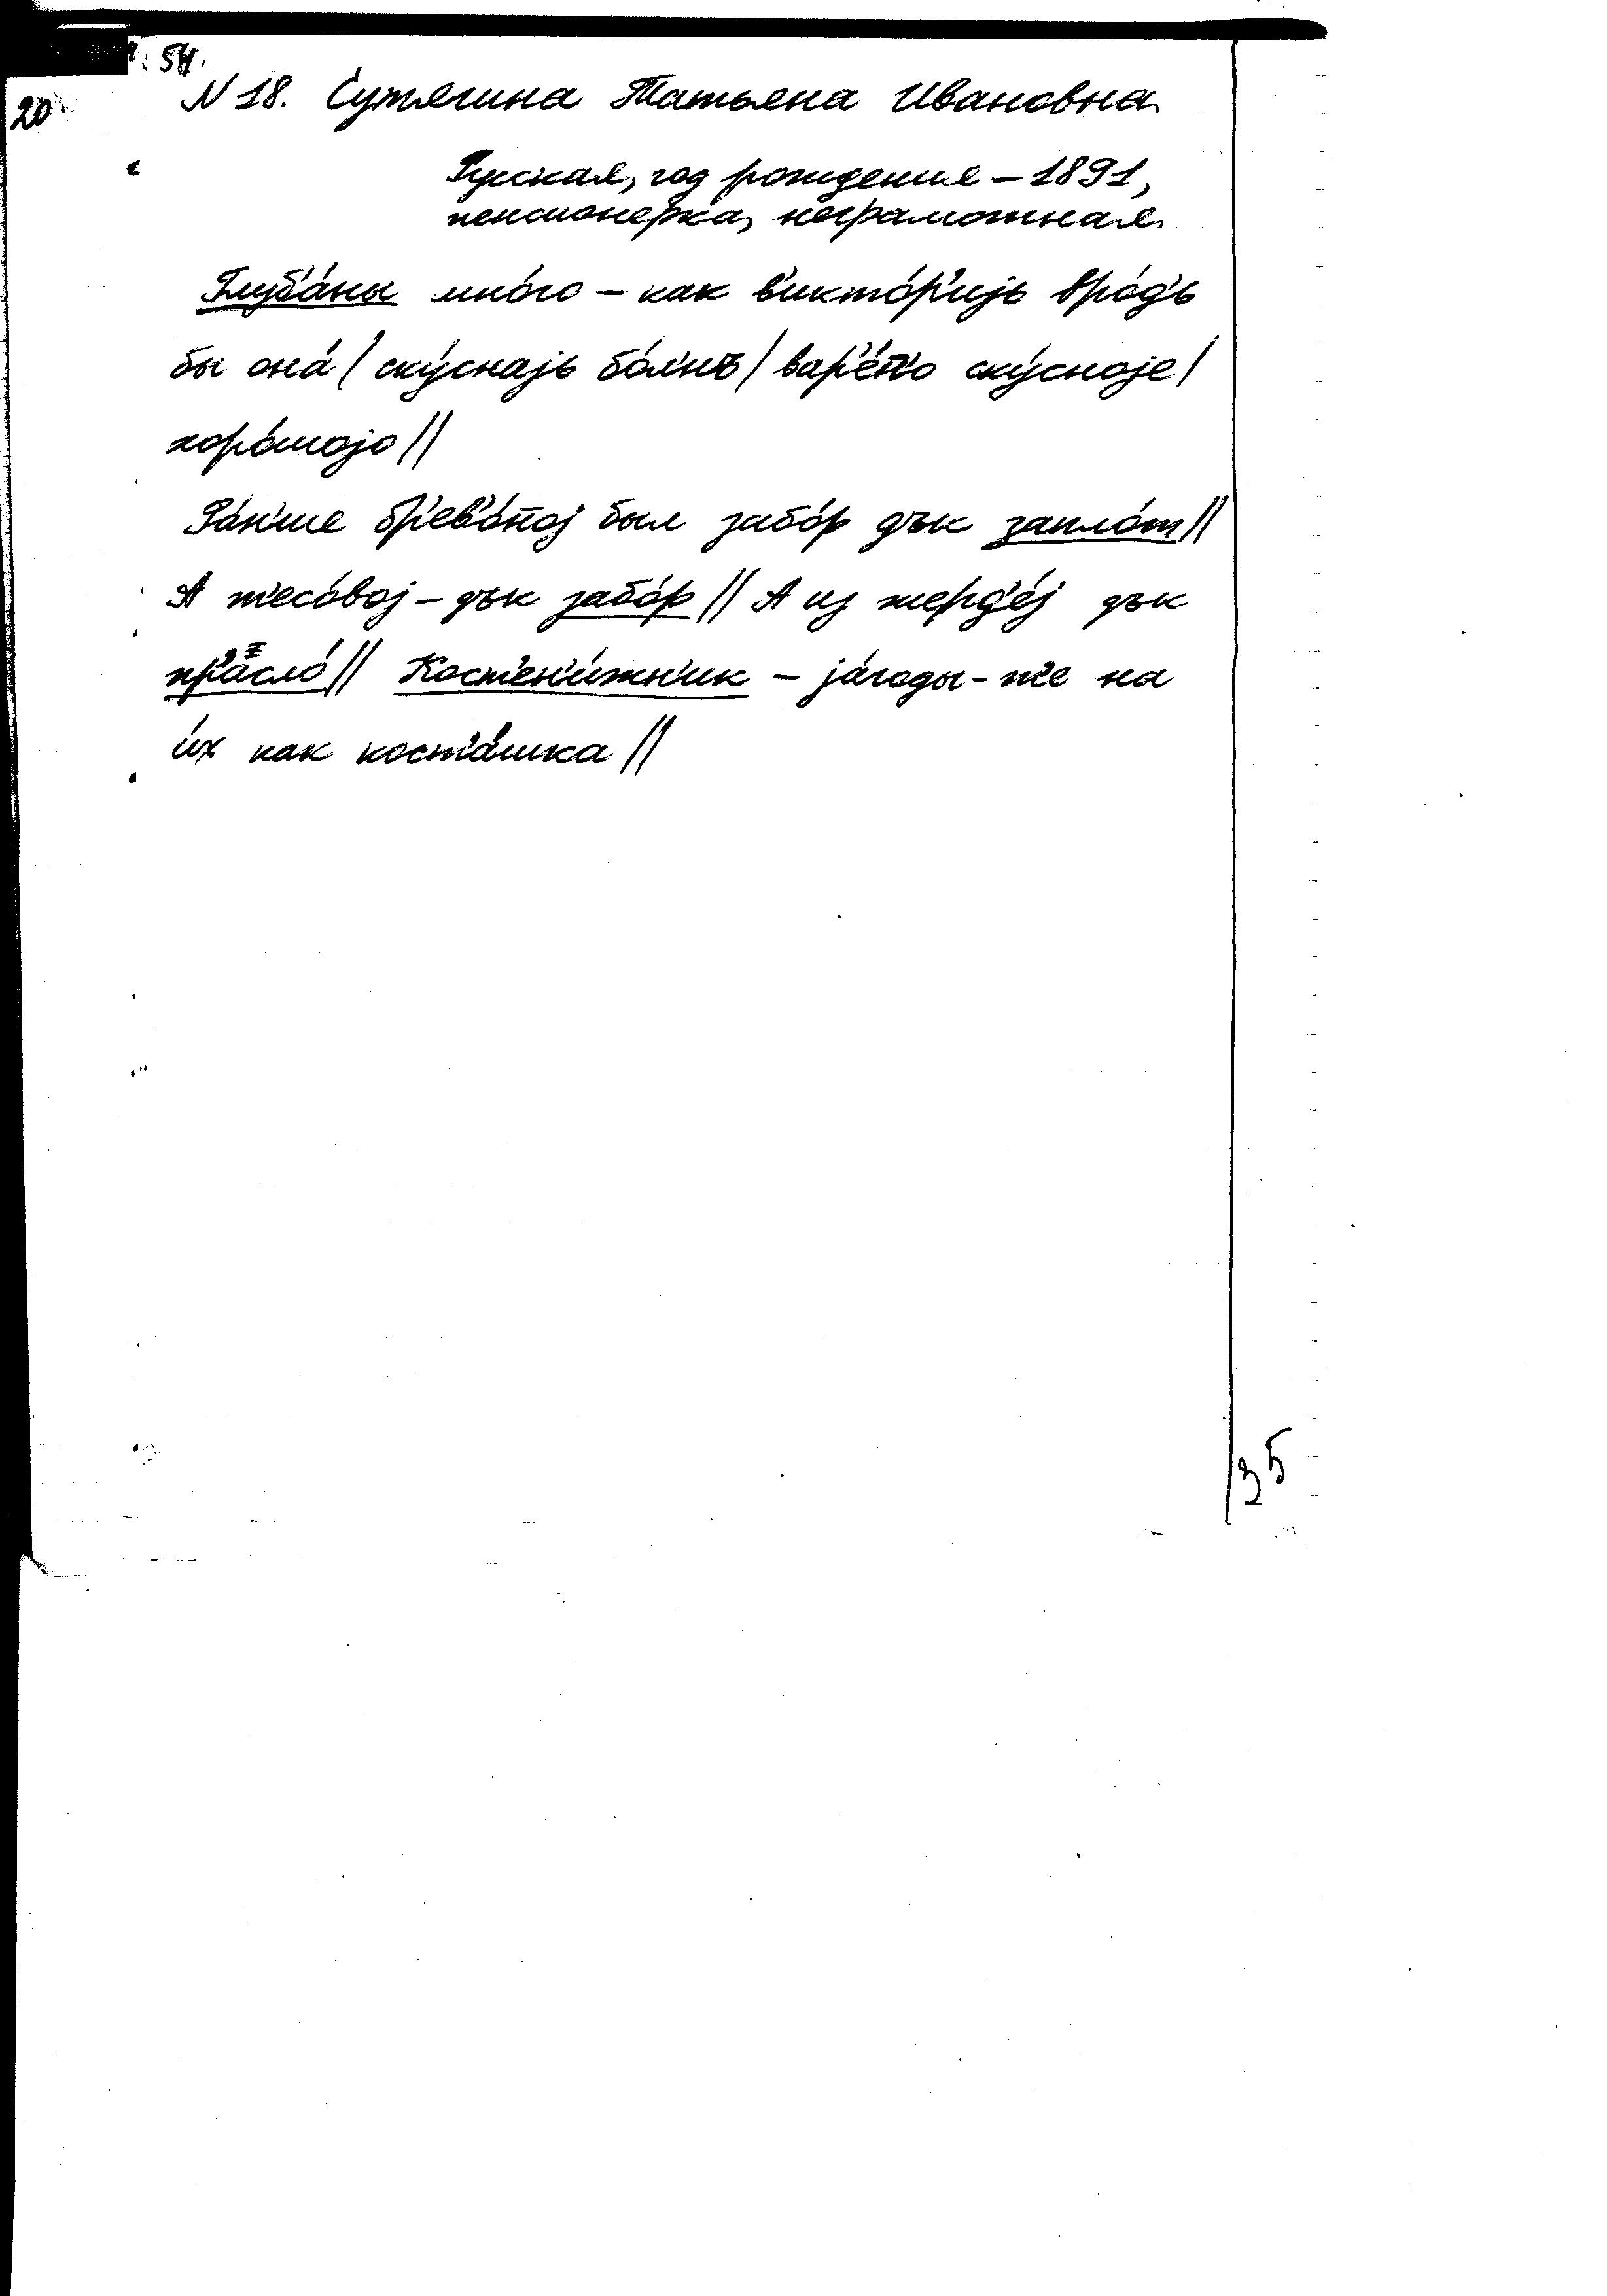 54.
20
N 18. Сутягина Татьяна Ивановна
Русская, год рождения – 1891,
пенсионерка, неграмотная.
Глуб'а́ны мно́го – как в'икто́р'иjь врод'ь
бы она́ / ску́снаjь бо́л'нъ / вар'е́н'jо ску́сноjе /
хоро́шоjо //
Ра́н'ше бр'ев'о́нноj был забо́р дък запло́т //
А т'есо́воj – дък забо́р // А из жерд'е́j дък
пр'а́сло́ // Кост'ен'и́жн'ик – jа́годы - т'е на
и́х как кост'а́шка //
35